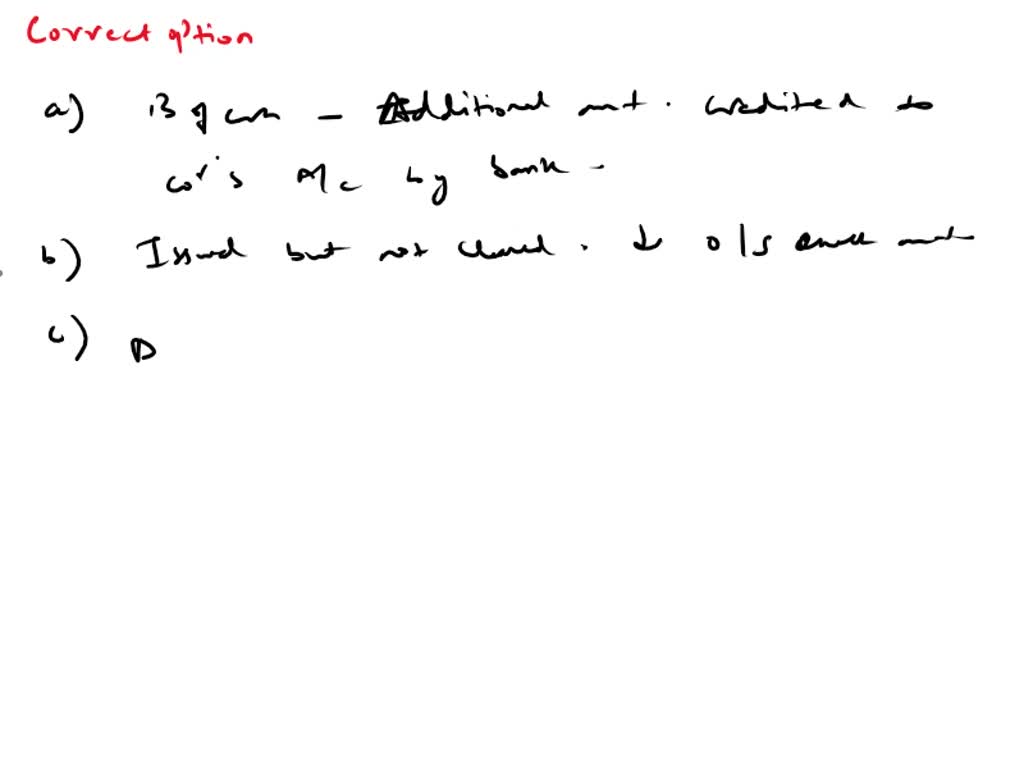 Correct option
a) B of com - Additional amt. credited to
co's A/c by bank -
b) Issued but not cleared. ↓ o/s amt
c) D